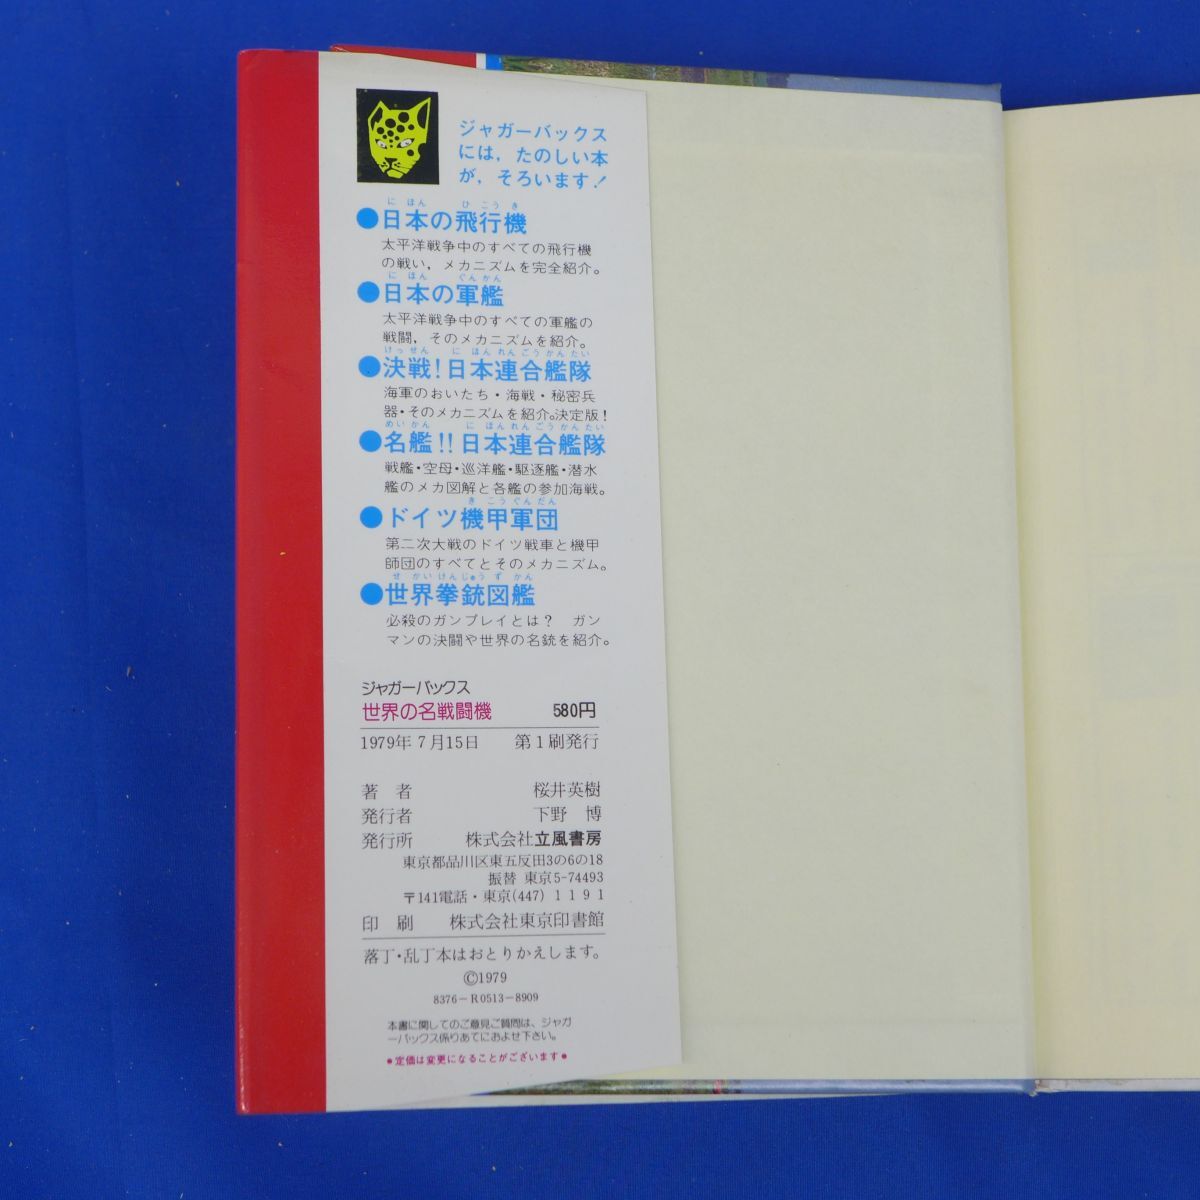 ジャガーバックス
には，たのしい本
が，そろいます！
にほん ひこうき
●日本の飛行機
太平洋戦争中のすべての飛行機
の戦い，メカニズムを完全紹介。
にほん ぐんかん
●日本の軍艦
太平洋戦争中のすべての軍艦の
戦闘，そのメカニズムを紹介。
けっせん にほんれんごうかんたい
●決戦！日本連合艦隊
海軍のおいたち・海戦・秘密兵
器・そのメカニズムを紹介。決定版！
めいかん にほんれんごうかんたい
●名艦！！日本連合艦隊
戦艦・空母・巡洋艦・駆逐艦・潜水
艦のメカ図解と各艦の参加海戦。
きこうぐんだん
●ドイツ機甲軍団
第二次大戦のドイツ戦車と機甲
師団のすべてとそのメカニズム。
せかいけんじゅうずかん
●世界拳銃図艦
必殺のガンプレイとは？ ガン
マンの決闘や世界の名銃を紹介。
ジャガーバックス
世界の名戦闘機 580円
1979年7月15日 第1刷発行
著者 桜井英樹
発行者 下野 博
発行所 株式会社立風書房
東京都品川区東五反田3の6の18
振替 東京5-74493
〒141電話・東京(447)1191
印刷 株式会社東京印書館
落丁・乱丁本はおとりかえします。
©1979
8376－R0513－8909
本書に関してのご意見ご質問は、ジャガ
ーバックス係りあてにおよせ下さい。
●定価は変更になることがございます●